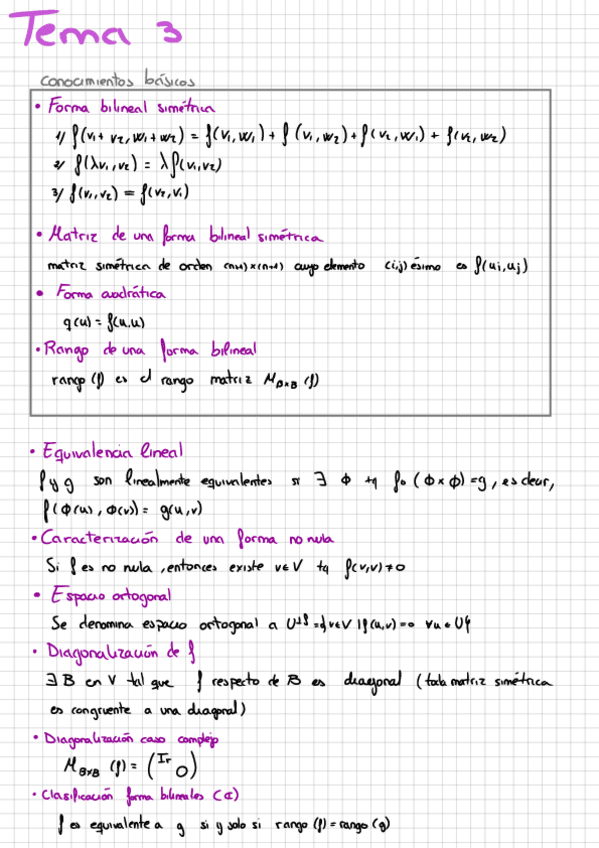 Tema 3
Conocimientos básicos
• Forma bilineal simétrica
1/ f(v₁+ v₂, w₁+ w₂) = f(v₁, w₁) + f(v₁, w₂) + f(v₂, w₁) + f(v₂, w₂)
2/ f(λv₁, v₂) = λf(v₁, v₂)
3/ f(v₁, v₂) = f(v₂, v₁)
• Matriz de una forma bilineal simétrica
matriz simétrica de orden (n+1)×(n+1) cuyo elemento (i,j) ésimo es f(ui, uj)
• Forma cuadrática
q(u) = f(u,u)
• Rango de una forma bilineal
rango (f) es el rango matriz M_B×B (f)
• Equivalencia lineal
f y g son linealmente equivalentes si ∃ Φ tq f∘(Φ×Φ) = g, es decir,
f(Φ(u), Φ(v)) = g(u,v)
• Caracterización de una forma no nula
Si f es no nula, entonces existe v∈V tq f(v,v)≠0
• Espacio ortogonal
Se denomina espacio ortogonal a U^⊥f = {v∈V | f(u,v)=0 ∀u∈U}
• Diagonalización de f
∃ B en V tal que f respecto de B es diagonal (toda matriz simétrica
es congruente a una diagonal)
• Diagonalización caso complejo
M_B×B (f) = (Ir 0)
• Clasificación forma bilineales (C)
f es equivalente a g si y solo si rango (f) = rango (g)